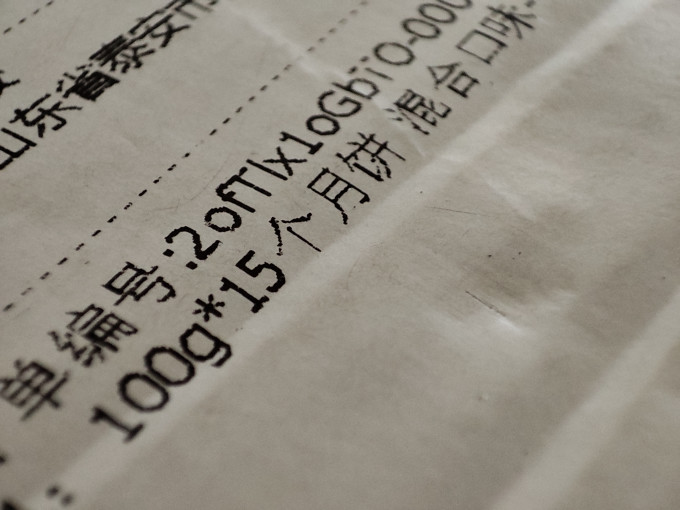 山东省泰安市
单编号:2ofTlx1oGbiO-000
100g*15个月饼 混合口味